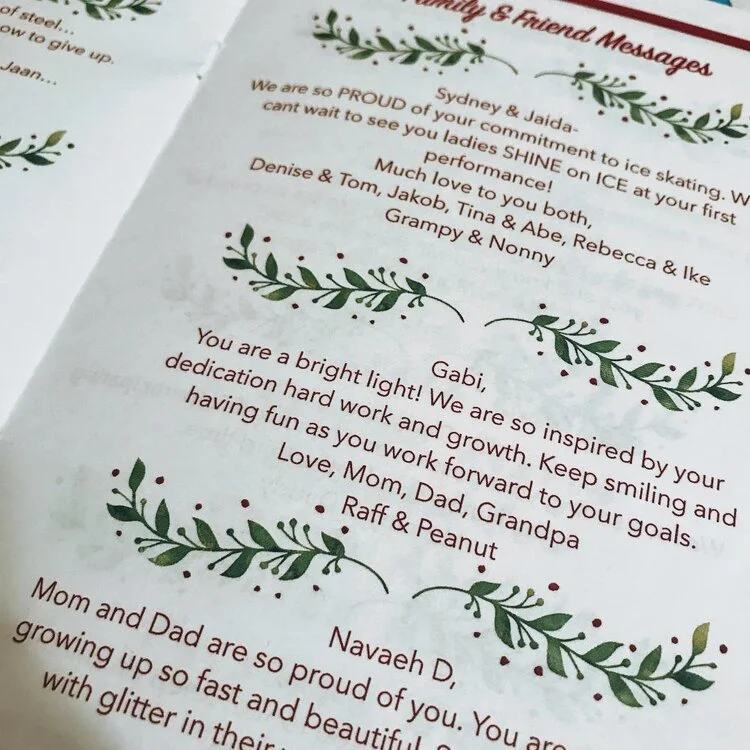 of steel...
ow to give up.
Jaan...
Family & Friend Messages
Sydney & Jaida-
We are so PROUD of your commitment to ice skating. W
cant wait to see you ladies SHINE on ICE at your first
performance!
Much love to you both,
Denise & Tom, Jakob, Tina & Abe, Rebecca & Ike
Grampy & Nonny
Gabi,
You are a bright light! We are so inspired by your
dedication hard work and growth. Keep smiling and
having fun as you work forward to your goals.
Love, Mom, Dad, Grandpa
Raff & Peanut
Navaeh D,
Mom and Dad are so proud of you. You are
growing up so fast and beautiful
with glitter in their